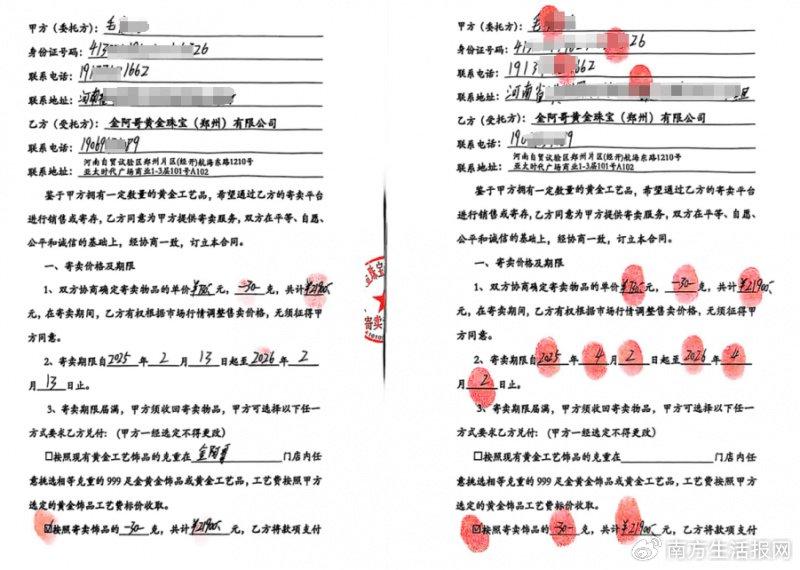 甲方（委托方）：毛
身份证号码：41326
联系电话：1911662
联系地址：河南省
乙方（受托方）：金阿哥黄金珠宝（郑州）有限公司
联系电话：1906989
联系地址：河南自贸试验区郑州片区(经开)航海东路1210号
亚太时代广场商业1-3层101号A102
鉴于甲方拥有一定数量的黄金工艺品，希望通过乙方的寄卖平台
进行销售或寄存，乙方同意为甲方提供寄卖服务，双方在平等、自愿、
公平和诚信的基础上，经协商一致，订立本合同。
一、寄卖价格及期限
1、双方协商确定寄卖物品的单价 元，-30-克，共计¥21905
元，在寄卖期间，乙方有权根据市场行情调整售卖价格，无须征得甲
方同意。
2、寄卖期限自2025年2月13日起至2026年2
月13日止。
3、寄卖期限届满，甲方须收回寄卖物品，甲方可选择以下任一
方式要求乙方兑付：（甲方一经选定不得更改）
□按照现有黄金工艺饰品的克重在金阿哥门店内任
意挑选相等克重的999足金黄金饰品或黄金工艺品，工艺费按照甲方
选定的黄金饰品工艺费标价收取。
☑按照寄卖饰品的-30-克，共计¥21905元，乙方将款项支付
珠宝
寄卖
甲方（委托方）：毛
身份证号码：4126
联系电话：1913662
联系地址：河南省
乙方（受托方）：金阿哥黄金珠宝（郑州）有限公司
联系电话：19089
联系地址：河南自贸试验区郑州片区(经开)航海东路1210号
亚太时代广场商业1-3层101号A102
鉴于甲方拥有一定数量的黄金工艺品，希望通过乙方的寄卖平台
进行销售或寄存，乙方同意为甲方提供寄卖服务，双方在平等、自愿、
公平和诚信的基础上，经协商一致，订立本合同。
一、寄卖价格及期限
1、双方协商确定寄卖物品的单价 元，-30-克，共计¥21905
元，在寄卖期间，乙方有权根据市场行情调整售卖价格，无须征得甲
方同意。
2、寄卖期限自2025年4月2日起至2026年4
月2日止。
3、寄卖期限届满，甲方须收回寄卖物品，甲方可选择以下任一
方式要求乙方兑付：（甲方一经选定不得更改）
□按照现有黄金工艺饰品的克重在门店内任
意挑选相等克重的999足金黄金饰品或黄金工艺品，工艺费按照甲方
选定的黄金饰品工艺费标价收取。
☑按照寄卖饰品的-30-克，共计¥21905元，乙方将款项支付
南方生活报网